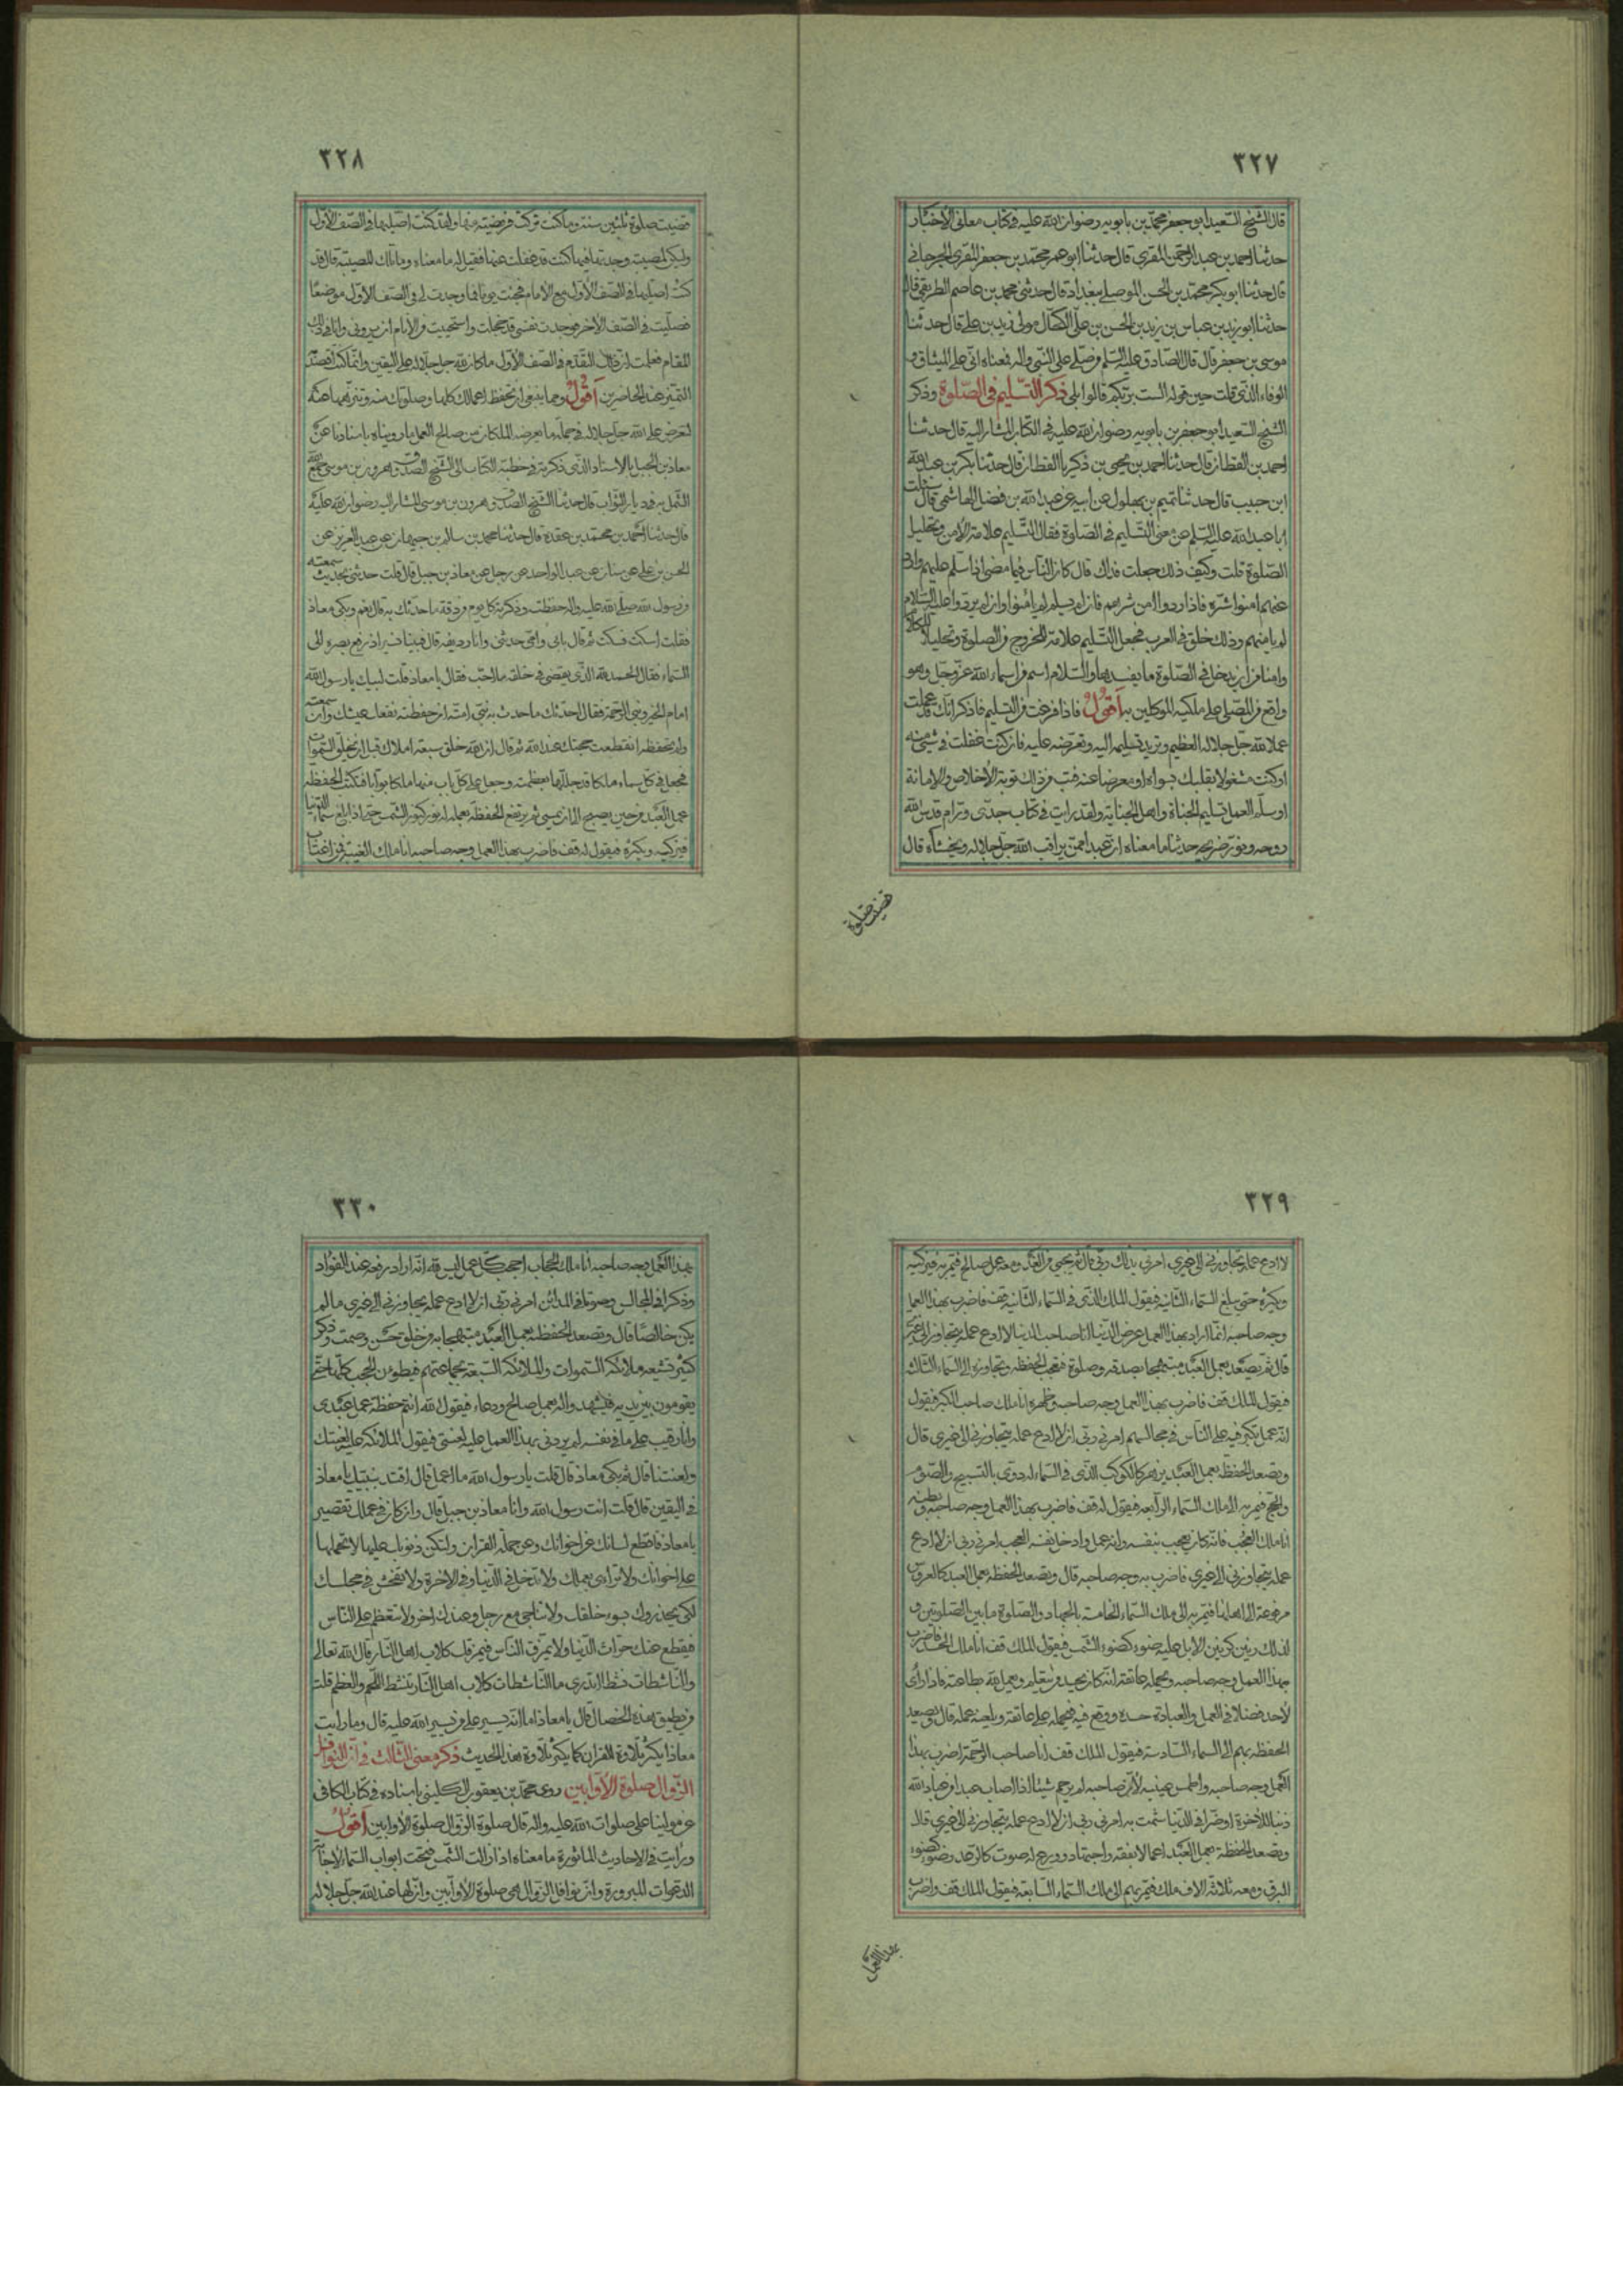 ٣٢٧
قال الشيخ السعيد ابو جعفر محمد بن بابويه رضوان الله عليه في كتاب معانى الاخبار
حدثنا احمد بن عبد الرحمن المقرى قال حدثنا ابو عمر محمد بن جعفر المقرى الجرجانى
قال حدثنا ابو بكر محمد بن الحسن الموصلى ببغداد قال حدثنى محمد بن عاصم الطريفى قال
حدثنا ابو زيد بن عباس بن يزيد بن الحسن بن على الكحال مولى زيد بن على قال حدثنا
موسى بن جعفر قال قال الصادق عليه السلم من صلى على النبى واله فمعناه انى على الميثاق و
الوفاء الذى قلت حين قوله الست بربكم قالوا بلى ذكر التسليم فى الصلوة وذكر
الشيخ السعيد ابو جعفر بن بابويه رضوان الله عليه فى الكتاب المشار اليه قال حدثنا
احمد بن القطان قال حدثنا احمد بن يحيى بن ذكريا القطان قال حدثنا بكر بن عبد الله
ابن حبيب قال حدثنا تميم بن بهلول عن ابيه عن عبد الله بن فضل الهاشمى قال سئلت
ابا عبد الله عليه السلم عن معنى التسليم فى الصلوة فقال التسليم علامة الامن وتحليل
الصلوة قلت وكيف ذلك جعلت فداك قال كان الناس فيما مضى اذا سلم عليهم وارد
عنهم امنوا شره فاذا ردوا امن شرهم فان لم يسلم لم يامنوا وان لم يردوا على السلام
لم يامنهم وذلك خلق فى العرب فجعل التسليم علامة للخروج من الصلوة وتحليلا للكلام
وامنا من ان يدخل فى الصلوة ما يفسدها والسلام اسم من اسماء الله عز وجل وهو
واقع من المصلى على ملكيه الموكلين به اقول فاذا فرغت من التسليم فاذكر انك قد عملت
عملا لله جل جلاله العظيم وتريد تسليمه اليه وتعرضه عليه فان كنت غفلت فى شئ منه
او كنت مشغولا بقلبك بسواه او معرضا عنه فتب من ذلك توبة الاخلاص والامانة
او سلم العمل تسليم الجناة واهل الجناية ولقد رايت فى كتاب جدى ورام قدس الله
روحه ونور ضريحه حديثا ما معناه ان عبدا ممن يراقب الله جل جلاله ويخشاه قال
قضيت صلوة
٣٢٨
قضيت صلوة ثلثين سنة وما كنت تركت فريضة منها ولقد كنت اصليها فى الصف الاول
ولكن لمصيبة وجدتها فيما كنت قد غفلت عنها فقيل له ما معناه وما تلك المصيبة قال قد
كنت اصليها فى الصف الاول مع الامام فجئت يوما فما وجدت لى فى الصف الاول موضعا
فصليت فى الصف الاخر فوجدت نفسى قد خجلت واستحيت من الانام ان يرونى وانا فى ذلك
المقام فعلمت ان ذلك التقدم فى الصف الاول ما كان لله جل جلاله على اليقين وانما كنت اقصد
التميز عند الحاضرين اقول ومما ينبغى ان تحفظ اعمالك كلها وصلوتك منه وتنزهها عنه
لتعرض على الله جل جلاله فى جملة ما يعرضه الملكان من صالح العمل ما رويناه باسنادنا عن
معاذ بن الجبل بالاسناد الذى ذكرته فى خطبة الكتاب الى الشيخ الصدوق هرون بن موسى
التلعكبرى قال حدثنا الشيخ الصدوق هرون بن موسى المشار اليه رضوان الله عليه
قال حدثنا احمد بن محمد بن عقدة قال حدثنا محمد بن سالم بن جبهان عن عبد العزيز عن
الحسن بن على عن سنان عن عبد الواحد عن رجل عن معاذ بن جبل قال قلت حدثنى بحديث سمعته
من رسول الله صلى الله عليه واله حفظته وذكرته كل يوم من دقة ما حدثك به قال نعم وبكى معاذ
فقلت اسكت فسكت ثم قال بابى وامى حدثنى وانا رديفه قال فبينا نسير اذ رفع بصره الى
السماء فقال الحمد لله الذى يقضى فى خلقه ما احب فقال يا معاذ قلت لبيك يا رسول الله
امام الخير ونبى الرحمة فقال احدثك ما حدث به نبى امته ان حفظته نفعك عيشك وان سمعته
ولم تحفظه انقطعت حجتك عند الله ثم قال ان الله خلق سبعة املاك قبل ان يخلق السموات
فجعل فى كل سماء ملكا قد جللها بعظمته وجعل على كل باب منها ملكا بوابا فتكتب الحفظة
عمل العبد من حين يصبح الى ان يمسى ثم يرتفع الحفظة بعمله له نور كنور الشمس حتى اذا بلغ سماء الدنيا
فيزكيه ويكثره فيقول له قف فاضرب بهذا العمل وجه صاحبه انا ملك الغيبة فمن اغتاب
٣٢٩
لا ادع عمله يتجاوزنى الى غيرى امرنى بذلك ربى قال ثم يجيى من الغد ومعه عمل صالح فيمر به فيزكيه
ويكثره حتى يبلغ السماء الثانية فيقول الملك الذى فى السماء الثانية قف فاضرب بهذا العمل
وجه صاحبه انما اراد بهذا العمل عرض الدنيا انا صاحب الدنيا لا ادع عمله يتجاوزنى الى غيرى
قال ثم يصعد بعمل العبد مبتهجا بصدقة وصلوة فتعجب الحفظة وتجاوزه الى السماء الثالثة
فيقول الملك قف فاضرب بهذا العمل وجه صاحبه وظهره انا ملك صاحب الكبر فيقول
انه عمل تكبر فيه على الناس فى مجالسهم امرنى ربى ان لا ادع عمله يتجاوزنى الى غيرى قال
وتصعد الحفظة بعمل العبد يزهر كالكوكب الذى فى السماء له دوى بالتسبيح والصوم
والحج فيمر به الى ملك السماء الرابعة فيقول له قف فاضرب بهذا العمل وجه صاحبه وبطنه
انا ملك العجب فانه كان يعجب بنفسه وانه عمل وادخل نفسه العجب امرنى ربى ان لا ادع
عمله يتجاوزنى الى غيرى فاضرب به وجه صاحبه قال وتصعد الحفظة بعمل العبد كالعروس
مزفوفة الى اهلها فيمر به الى ملك السماء الخامسة بالجهاد والصلوة ما بين الصلوتين و
لذلك رنين كرنين الابل عليه ضوء كضوء الشمس فيقول الملك قف انا ملك الحسد فاضرب
بهذا العمل وجه صاحبه ويحمله على عاتقه انه كان يحسد من يتعلم ويعمل لله بطاعته فاذا راى
لاحد فضلا فى العمل والعبادة حسده ووقع فيه فيحمله على عاتقه ويلعنه عمله قال وتصعد
الحفظة بهم الى السماء السادسة فيقول الملك قف انا صاحب الرحمة اضرب بهذا
العمل وجه صاحبه واطمس عينيه لان صاحبه لم يرحم شيئا اذا اصاب عبدا من عباد الله
ذنبا للاخرة او ضرا فى الدنيا شمت به امرنى ربى ان لا ادع عمله يتجاوزنى الى غيرى قال
وتصعد الحفظة بعمل العبد اعمالا بفقه واجتهاد وورع له صوت كالرعد وضوء كضوء
البرق ومعه ثلاثة الاف ملك فيمر بهم الى ملك السماء السابعة فيقول الملك قف واضرب
بهذا العمل
٣٣٠
بهذا العمل وجه صاحبه انا ملك الحجاب احجب كل عمل ليس لله انه اراد رفعة عند القواد
وذكرا فى المجالس وصوتا فى المدائن امرنى ربى ان لا ادع عمله يجاوزنى الى غيرى ما لم
يكن خالصا قال وتصعد الحفظة بعمل العبد مبتهجا به من خلق حسن وصمت وذكر
كثير تشيعه ملائكة السموات والملائكة السبعة بجماعتهم فيطؤن الحجب كلها حتى
يقومون بين يديه فيشهدوا له بعمل صالح ودعاء فيقول الله انتم حفظة عمل عبدى
وانا رقيب على ما فى نفسه لم يردنى بهذا العمل عليه لعنتى فيقول الملائكة عليه لعنتك
ولعنتنا قال ثم بكى معاذ قال قلت يا رسول الله ما اعمل قال اقتد بنبيك يا معاذ
فى اليقين قال قلت انت رسول الله وانا معاذ بن جبل قال وان كان فى عملك تقصير
يا معاذ فاقطع لسانك عن اخوانك وعن حملة القران ولتكن ذنوبك عليك لا تحملها
على اخوانك ولا تراءى بعملك ولا تدخل فى الدنيا وفى الاخرة ولا تفحش فى مجلسك
لكى يحذروك بسوء خلقك ولا تناجى مع رجل وعندك اخر ولا تتعظم على الناس
فيقطع عنك خيرات الدنيا ولا تمزق الناس فيمزقك كلاب اهل النار قال الله تعالى
والناشطات نشطا اتدرى ما الناشطات كلاب اهل النار تنشط اللحم والعظم قلت
من يطيق هذه الخصال قال يا معاذ اما انه يسير على من يسير الله عليه قال وما رايت
معاذا يكثر تلاوة القران كما يكثر تلاوة هذا الحديث ذكر معنى الثالث فى ان النوافل
الزوال صلوة الاوابين روى محمد بن يعقوب الكلينى باسناده فى كتاب الكافى
عن مولينا على صلوات الله عليه واله قال صلوة الزوال صلوة الاوابين اقول
ورايت فى الاحاديث المأثورة ما معناه اذا زالت الشمس فتحت ابواب السماء لاجابة
الدعوات المبرورة وان نوافل الزوال هى صلوة الاوابين وانها عند الله جل جلاله